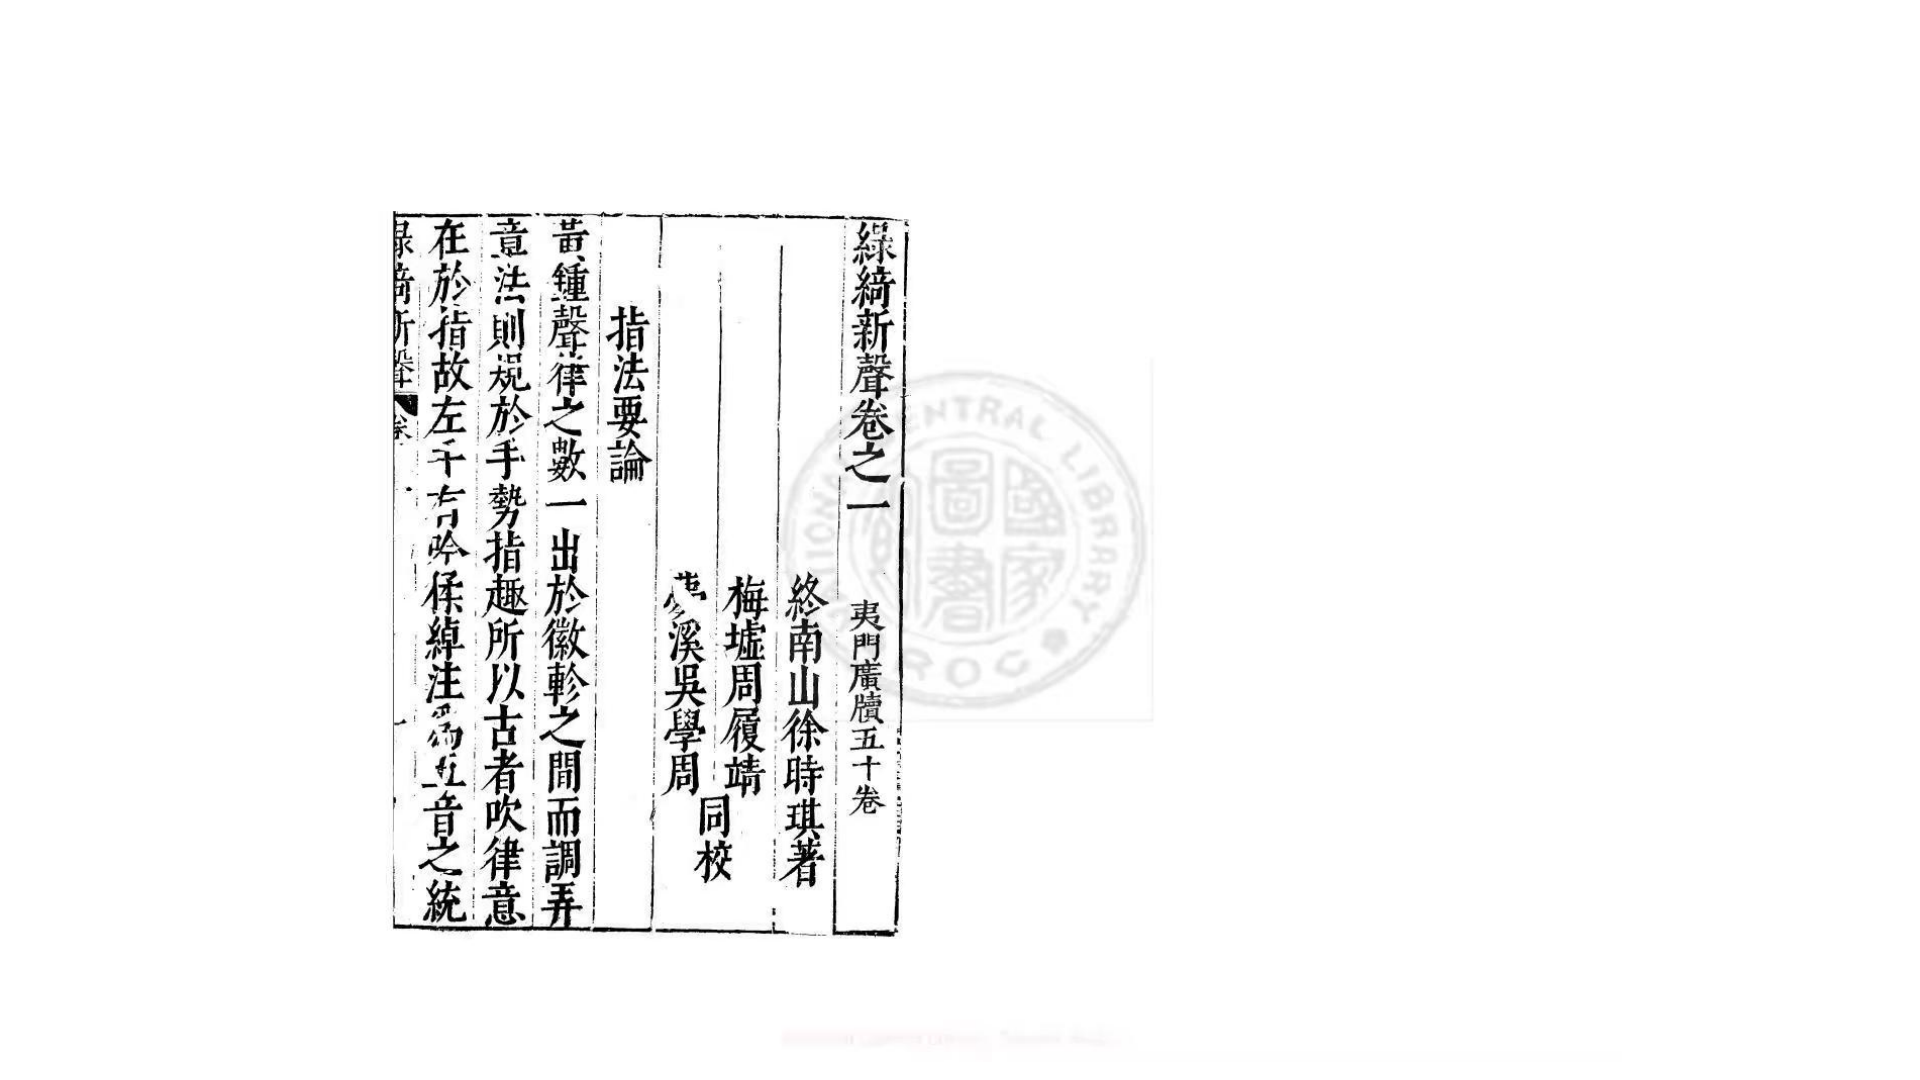 綠綺新聲卷之一 夷門廣牘五十卷
終南山徐時琪著
梅墟周履靖
夢溪吳學周
同校
指法要論
黃鍾聲律之數一出於徽軫之間而調弄
意法則規於手勢指趣所以古者吹律意
在於指故左手有吟猱綽注為五音之統
綠綺新聲 卷一
NATIONAL CENTRAL LIBRARY
R O C
國家圖書館